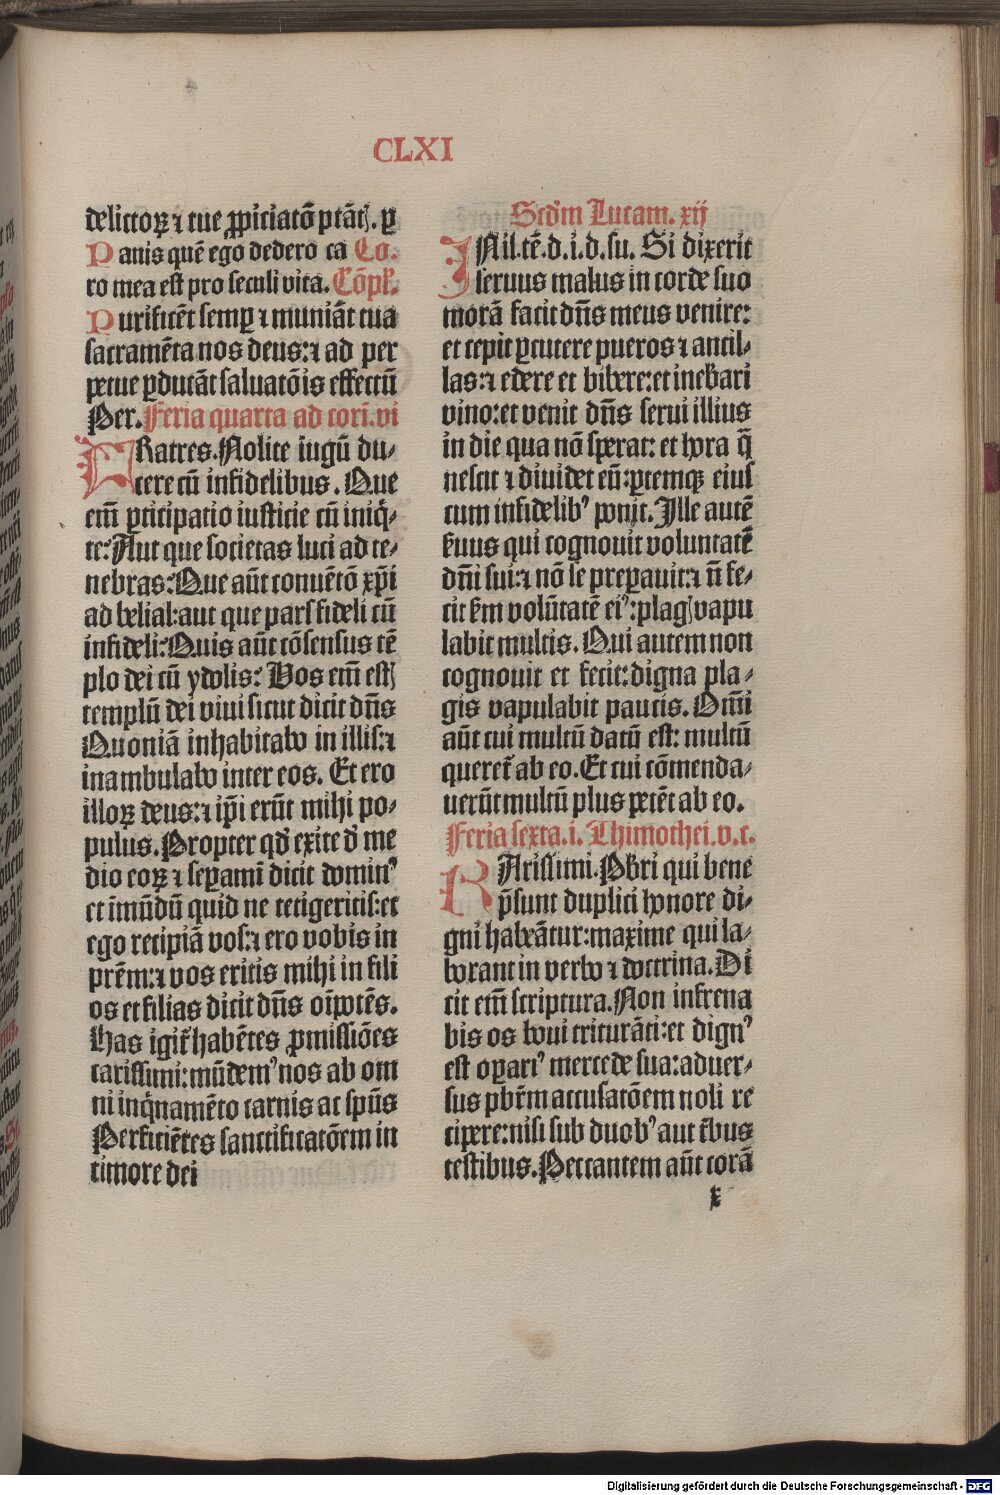 CLXI
delictoꝝ ⁊ tue ꝓpiciatō ptātꝭ. ꝑ
Panis quē ego dedero ca Co.
ro mea est pro seculi vita. Cōpl'.
Purificēt semꝑ ⁊ muniāt tua
sacramēta nos deus:⁊ ad per
petue ꝑducāt saluatōis effectū
Per. Feria quarta ad cori. vi
FRatres. Nolite iugū du-
cere cū infidelibus. Que
em̄ ꝑticipatio iusticie cū iniq̄-
te: Aut que societas luci ad te-
nebras: Que aūt conuētō xp̄i
ad belial:aut que pars fideli cū
infideli: Quis aūt cōsensus tē
plo dei cū ydolis: Vos em̄ estꝭ
templū dei viui sicut dicit dn̄s
Quoniā inhabitabo in illis:⁊
inambulabo inter eos. Et ero
illoꝝ deus:⁊ ip̄i erūt mihi po-
pulus. Propter qd' exite d' me
dio eoꝝ ⁊ seꝑami dicit dominꝰ
et īmūdū quid ne tetigeritis:et
ego recipiā vos:⁊ ero vobis in
prēm:⁊ vos eritis mihi in fili
os et filias dicit dn̄s oīpotēs.
Has igit̄ habētes ꝓmissiōes
carissimi:mūdemꝰ nos ab om
ni inq̄namēto carnis ac spūs
Perficiētes sanctificatōem in
timore dei
Scd'm Lucam. xij
INil.tē.d.i.d.su. Si dixerit
seruus malus in corde suo
morā facit dn̄s meus venire:
et cepit ꝑcutere pueros ⁊ ancil-
las:⁊ edere et bibere:et inebari
vino:et venit dn̄s serui illius
in die qua nō sperat: et hora q̄
nescit ⁊ diuidet eū:ꝑtemqꝫ eius
cum infidelibꝰ ponit. Ille autē
s̄uus qui cognouit voluntatē
dn̄i sui:⁊ nō se preꝑauit:⁊ n̄ fe-
cit s̄m volūtatē eiꝰ:plagꝭ vapu
labit multis. Qui autem non
cognouit et fecit:digna pla-
gis vapulabit paucis. Om̄i
aūt cui multū datū est: multū
queret̄ ab eo. Et cui cōmenda-
uerūt multū plus petēt ab eo.
Feria sexta. i. Thimothei. v. c.
KArissimi. Pbr̄i qui bene
p̄sunt duplici honore di-
gni habeātur:maxime qui la-
borant in verbo ⁊ doctrina. Di
cit em̄ scriptura. Non infrena
bis os boui triturāti:et dignꝰ
est oꝑariꝰ mercede sua:aduer-
sus pbr̄m accusatōem noli re
cipere:nisi sub duobꝰ aut t̄bus
testibus. Peccantem aūt corā
x
Digitalisierung gefördert durch die Deutsche Forschungsgemeinschaft - DFG